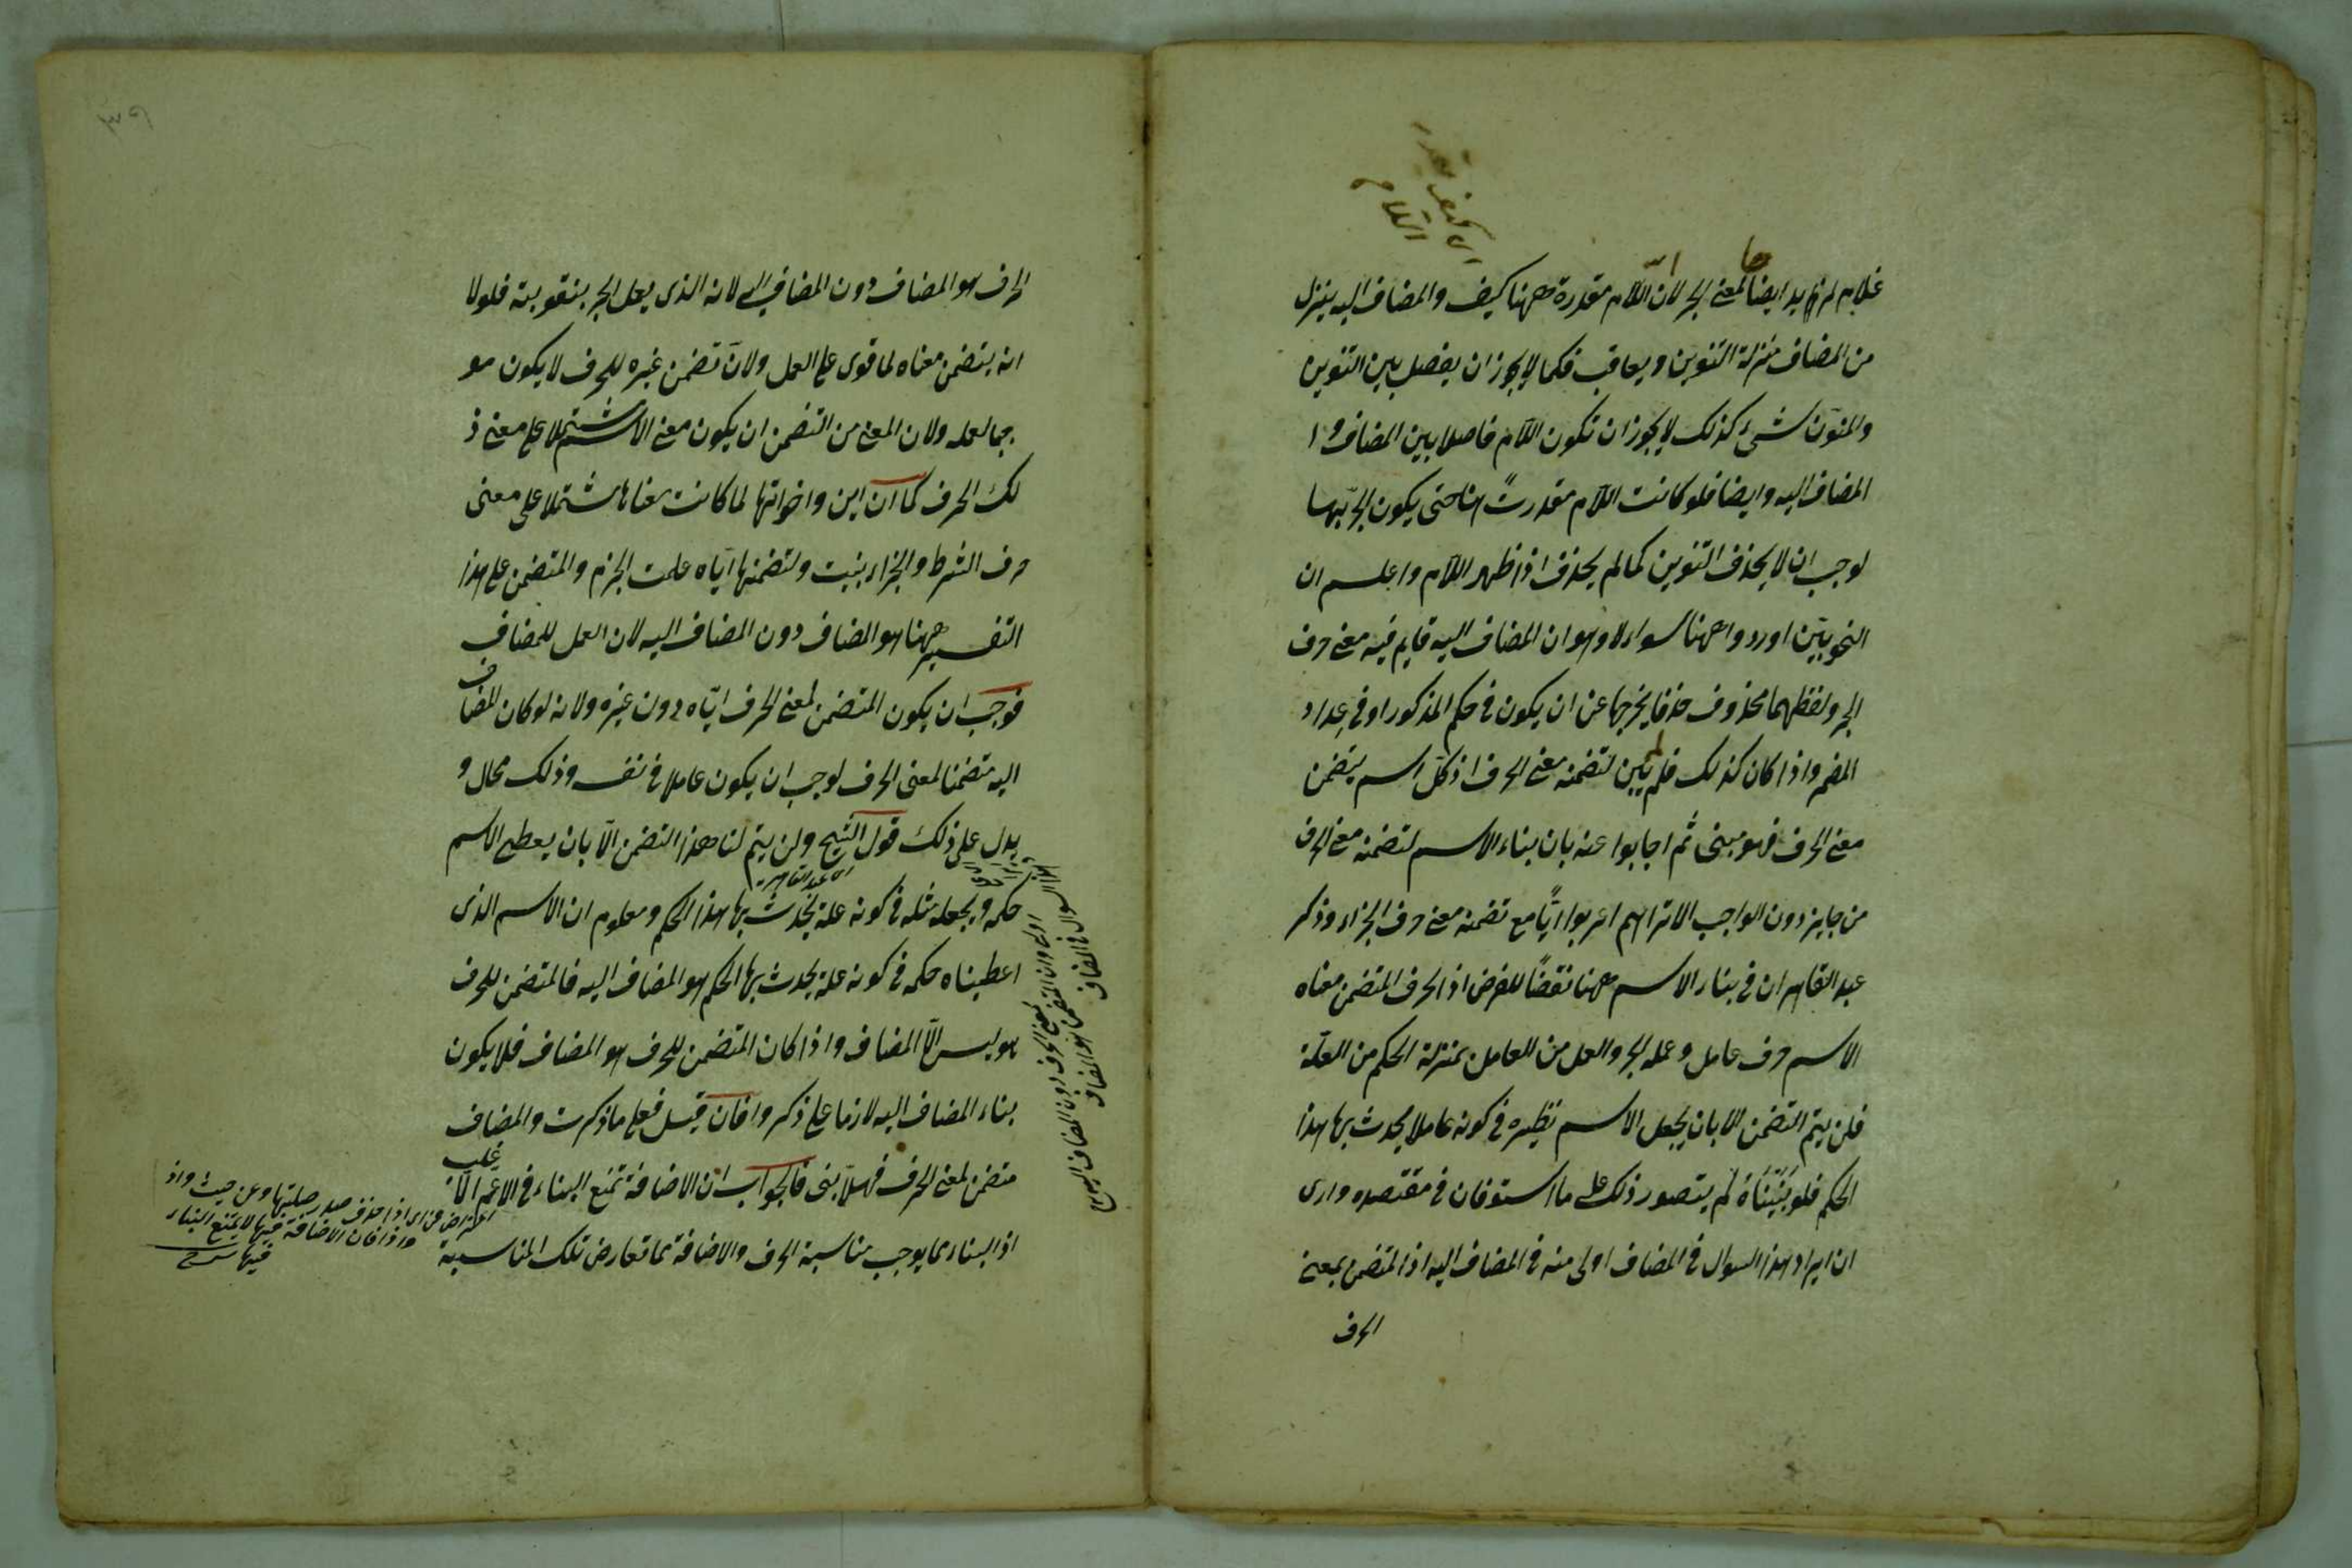 غلام لزيد ايضا لمعنى الجر لان اللام مقدرة ههنا كيف والمضاف اليه ينزل
من المضاف منزلة التنوين ويعاقب فكما لا يجوز ان يفصل بين التنوين
والمنون شئ كذلك لا يجوز ان تكون اللام فاصلا بين المضاف و ا
المضاف اليه وايضا فلو كانت اللام مقدرت هنا حتى يكون الجر بها
لوجب ان لا يحذف التنوين كما لم يحذف اذا ظهر اللام واعلم ان
النحويين اوردوا ههنا سوالا وهو ان المضاف اليه قايم فيه معنى حرف
الجر ولفظهما محذوف حذفا يخرجها عن ان يكون في حكم المذكور او في عداد
المضمر واذا كان كذلك فلم لم يبن لتضمنه معنى الحرف اذ كل اسم يتضمن
معنى الحرف فهو مبنى ثم اجابوا عنه بان بناء الاسم لتضمنه معنى الحرف
من جايز دون الواجب الا ترا انهم اعربوا ايًّا مع تضمنه معنى حرف الجزاء وذكر
عبد القاهر ان في بناء الاسم ههنا نقضًا للغرض اذ الحرف المتضمن معناه
الاسم حرف عامل وعمله الجر والعمل من العامل بمنزلة الحكم من العلة
فلن يتم التضمن الا بان يجعل الاسم نظيره في كونه عاملا يحدث بها هذا
الحكم فلو بنيناه لم يتصور ذلك على ما استوفان في مقتصده وارى
ان ايراد هذا السوال في المضاف اولى منه في المضاف اليه اذ المتضمن بمعنى
الحرف
الحرف هو المضاف دون المضاف اليه لانه الذى يعمل الجر بنقويته فلولا
انه يتضمن معناه لما قوى على العمل ولان تضمن غيره للحرف لا يكون مو
جبا لعمله ولان المعنى من التضمن ان يكون معنى الاسم مشتملا على معنى ذ
لك الحرف كما ان اين واخواتها لما كانت معناها مشتملا على معنى
حرف الشرط والجزاء بنيت ولتضمنها اياه عملت الجزم والمتضمن على هذا
التفسير ههنا هو المضاف دون المضاف اليه لان العمل للمضاف
فوجب ان يكون المتضمن لمعنى الحرف اياه دون غيره ولانه لو كان المضاف
اليه متضمنا لمعنى الحرف لوجب ان يكون عاملا في نفسه وذلك محال و
يدل على ذلك قول الشيخ ولن يتم لنا هذا التضمن الا بان يعطى الاسم
اى عبد القاهر
حكمه ويجعله مثله في كونه علة يحدث بها هذا الحكم ومعلوم ان الاسم الذى
اعطيناه حكمه في كونه علة يحدث بها الحكم هو المضاف اليه فالمتضمن للحرف
هو ليس الا المضاف واذا كان المتضمن للحرف هو المضاف فلا يكون
بناء المضاف اليه لازما على ذكروا فان قيل فعلى ما ذكرت والمضاف
متضمن لمعنى الحرف فهلا بنى فالجواب ان الاضافة تمنع البناء في الاعم الاغلب
اذ البناء بما يوجب مناسبة الحرف والاضافة مما تعارض تلك المناسبة
السوال في المضاف
اولى وان المتضمن هو المضاف
لمعنى الحرف دون المضاف اليه
اعتراض من اى اذا حذف صدر صلتها وعن حيث واذ
واذا فان الاضافة فيها لا يمتنع البناء
فيها شرح